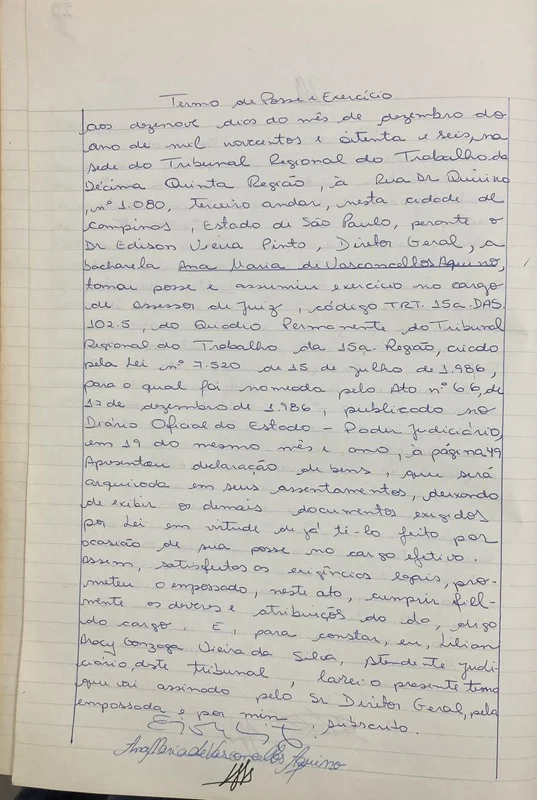 Termo de Posse e Exercício
aos dezenove dias do mês de dezembro do
ano de mil novecentos e oitenta e seis, na
sede do Tribunal Regional do Trabalho da
Décima Quinta Região, à Rua Dr Quirino
, nº 1.080, terceiro andar, nesta cidade de
Campinas, Estado de São Paulo, perante o
Dr Edison Vieira Pinto, Diretor Geral, a
bacharela Ana Maria de Vasconcellos Aquino,
tomou posse e assumiu exercício no cargo
de Assessor de Juiz, código TRT. 15a. DAS
102.5, do Quadro Permanente do Tribunal
Regional do Trabalho da 15a. Região, criado
pela Lei nº 7.520 de 15 de julho de 1.986,
para o qual foi nomeada pelo Ato nº 66, de
de dezembro de 1.986, publicado no
Diário Oficial do Estado - Poder Judiciário,
em 19 do mesmo mês e ano, à página 49
Apresentou declaração de bens, que será
arquivada em seus assentamentos, deixando
de exibir os demais documentos exigidos
por Lei em virtude de já tê-lo feito por
ocasião de sua posse no cargo efetivo.
Assim, satisfeitas as exigências legais, pro-
meteu o empossado, neste ato, cumprir fiel-
mente os deveres e atribuições do do, digo
do cargo. E, para constar, eu, Lilian
Aracy Gonzaga Vieira da Silva, Atendente Judi-
ciário, deste tribunal, lavrei o presente termo
que vai assinado pelo Sr Diretor Geral, pela
empossada e por mim, subscrito.
Ana Maria de Vasconcellos Aquino